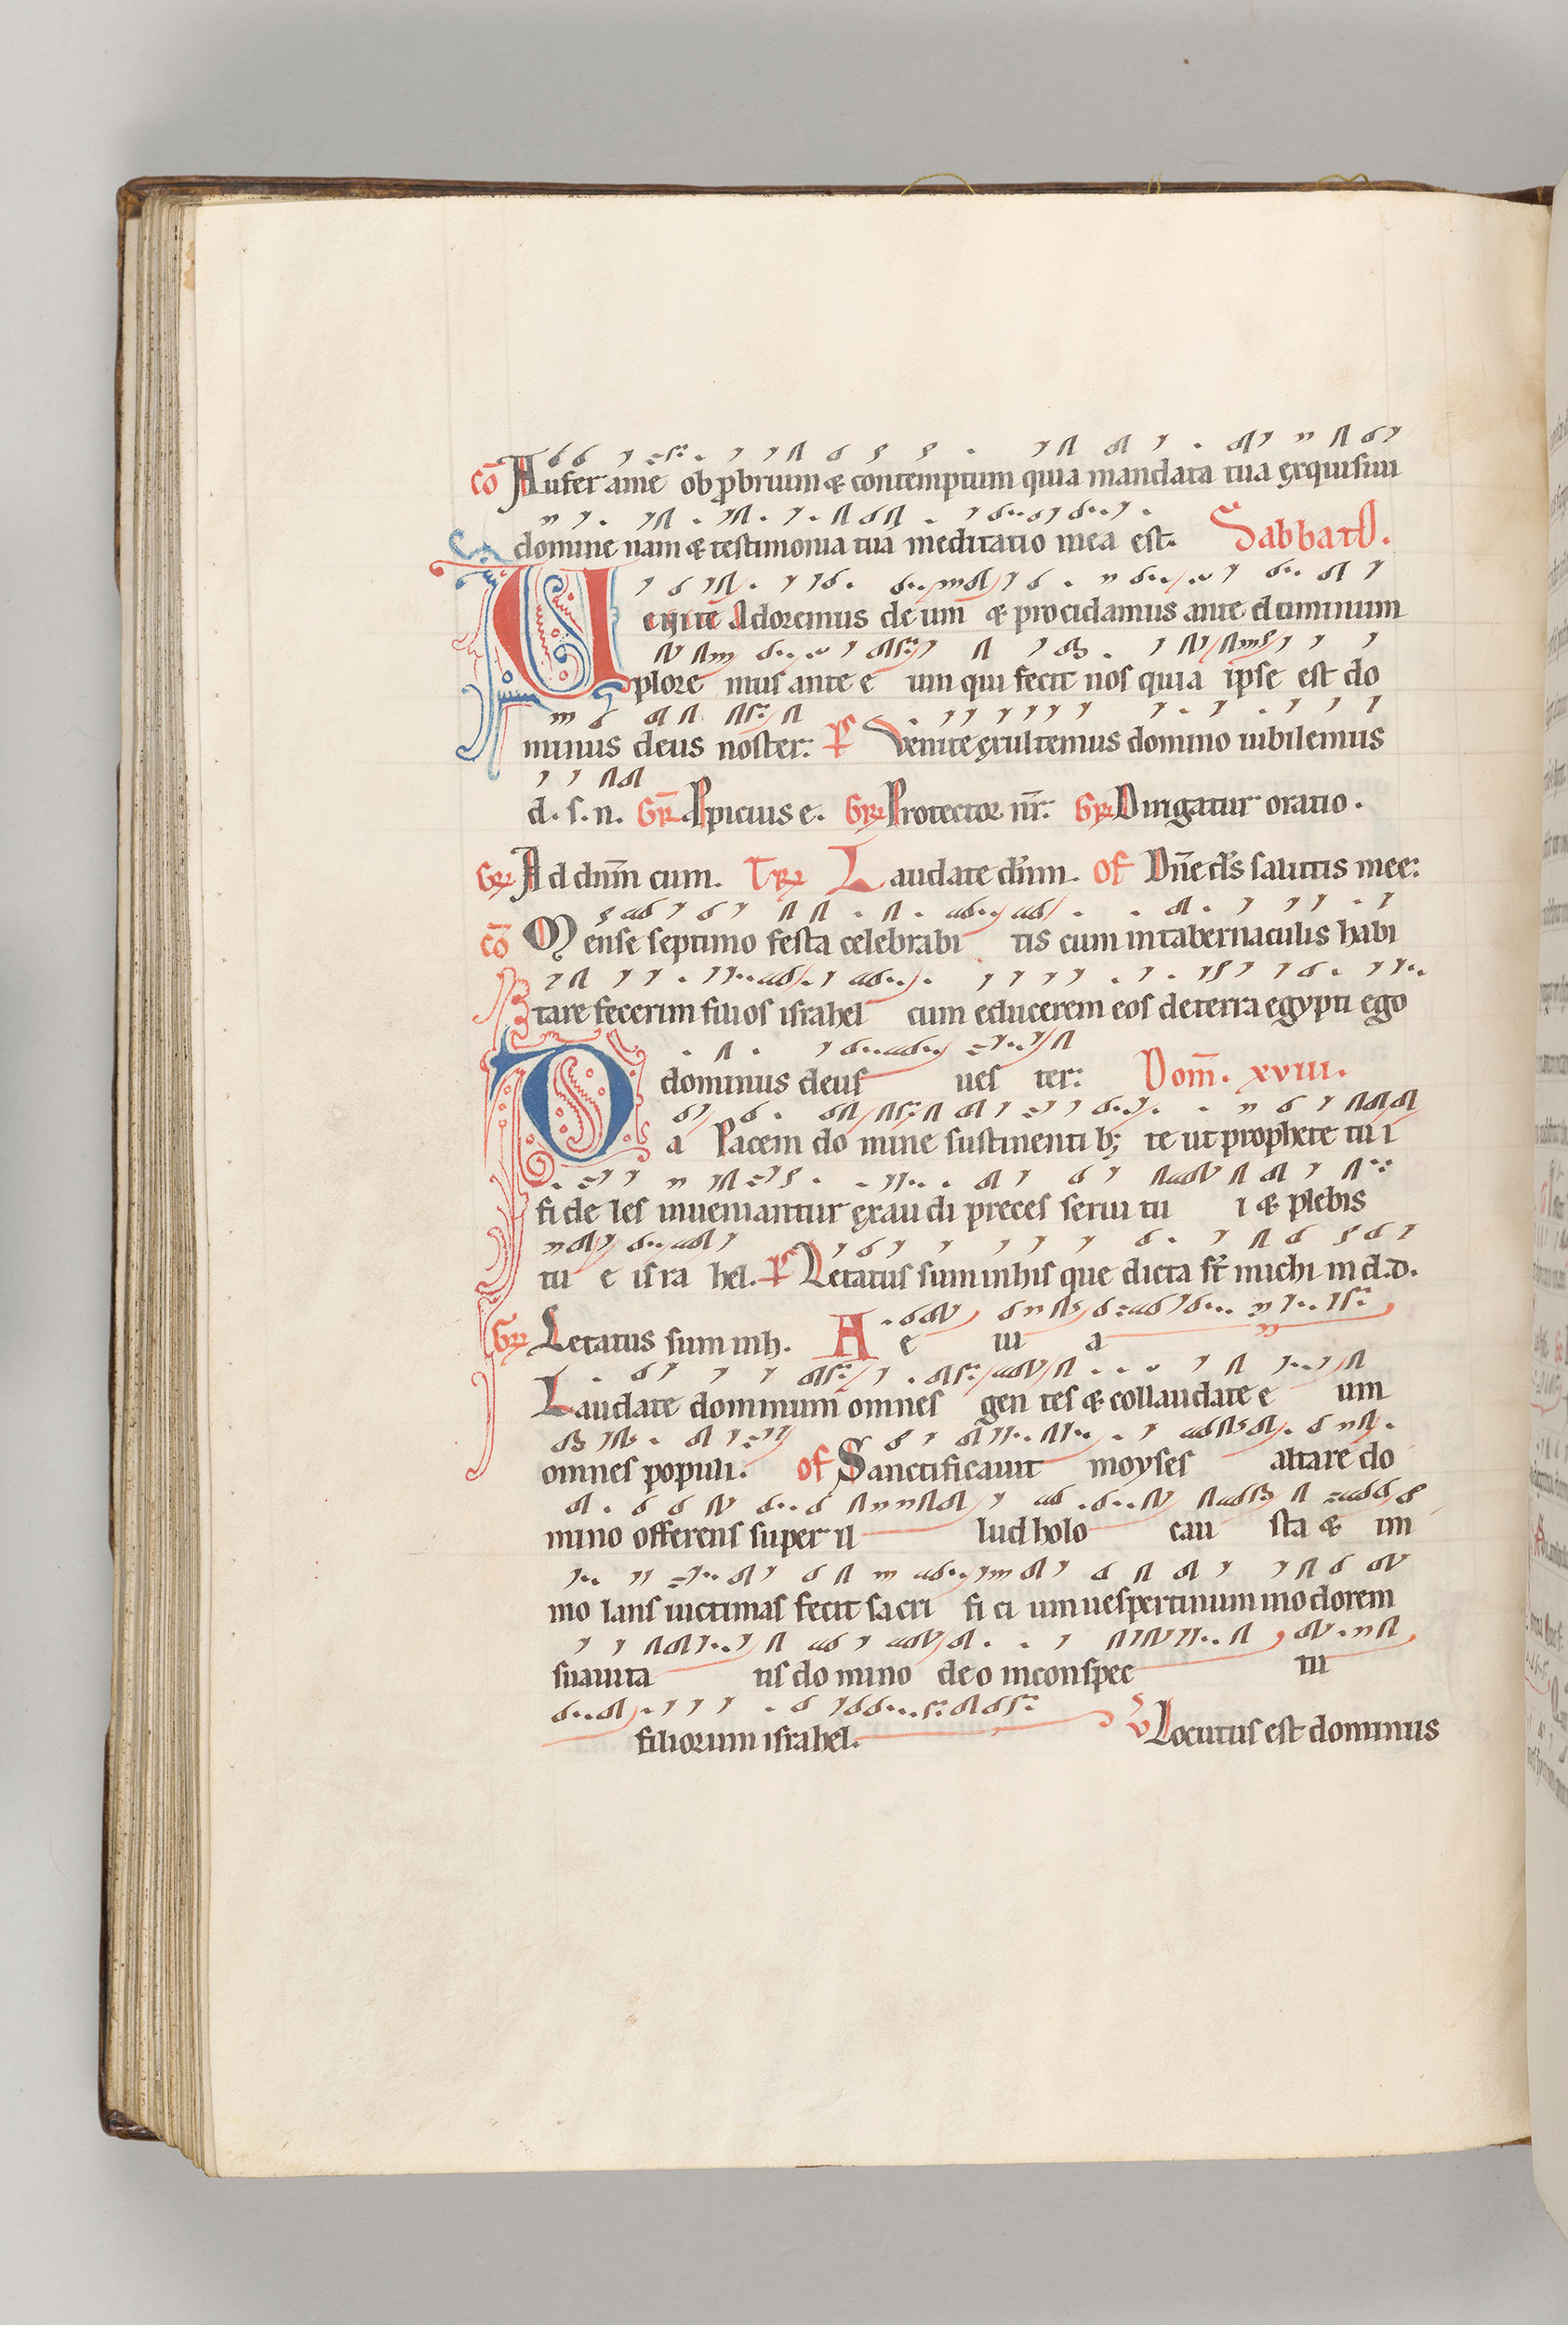 cō Aufer ame obprbrium & contemptum quia mandata tua ęxquisiui
domine nam & testimonia tua meditatio mea est. Sabbato.
Uenite Adoremus de um & procidamus ante dominum
plore mus ante e um qui fecit nos quia ipse est do
minus deus noster: ps Venite ęxultemus domino iubilemus
d. s. n. Gr̄ Ppicius e. Gr Protector nr̄. Gr Dirigatur oratio.
Gr Ad dnm̄ cum. Tr Laudate dn̄m. Of Dn̄e ds̄ salutis mee:
cō Mense septimo festa celebrabi tis cum in tabernaculis habi
tare fecerim filios israhel cum educerem eos de terra egypti ego
dominus deus ues ter: Dom̄. xviii.
Da Pacem do mine sustinenti b; te ut prophete tu i
fi de les inueniantur ęxau di preces serui tu i & plebis
tu e is ra hel. ps Letatus sum inhis que dicta st̄ michi in d.d.
Gr Letatus sum inh. A e ui a
Laudate dominum omnes gen tes & collaudate e um
omnes populi. of Sanctificauit moyses altare do
mino offerens super il lud holo cau sta & im
mo lans uictimas fecit sa cri fi ci um uespertinum in odorem
suauita tis do mino de o inconspec tu
filiorum israhel. v̄ Locutus est dominus